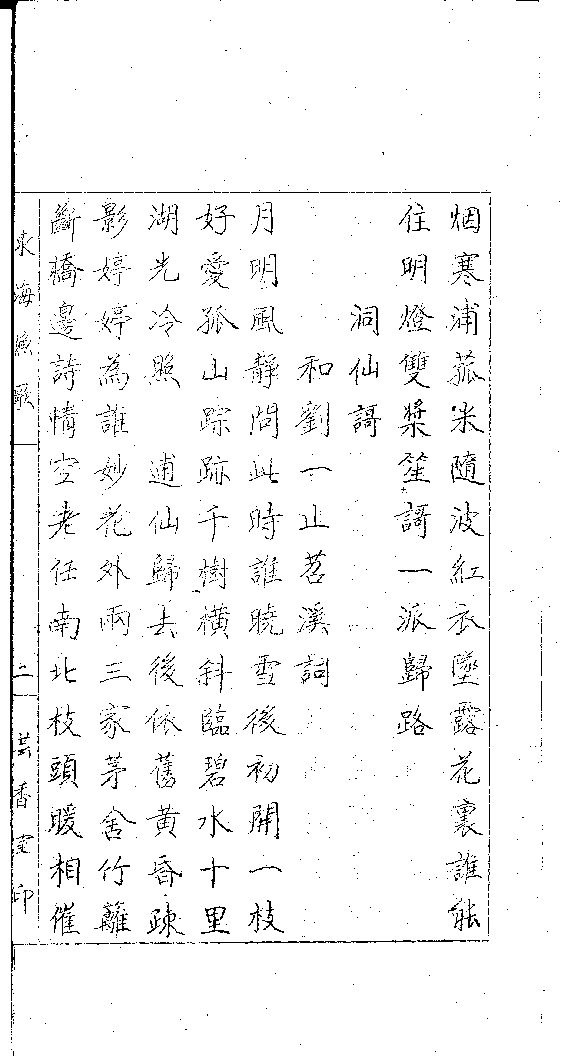 烟寒浦菰米隨波紅衣墜露花裏誰能
住明燈雙槳笙謌一派歸路
洞仙謌
和劉一止苕溪詞
月明風靜問此時誰曉雪後初開一枝
好愛孤山踪跡千樹橫斜臨碧水十里
湖光冷照　逋仙歸去後依舊黃昏疎
影婷婷為誰妙花外兩三家茅舍竹籬
斷橋邊詩情空老任南北枝頭暖相催
東海漁歌
二
芸香室印